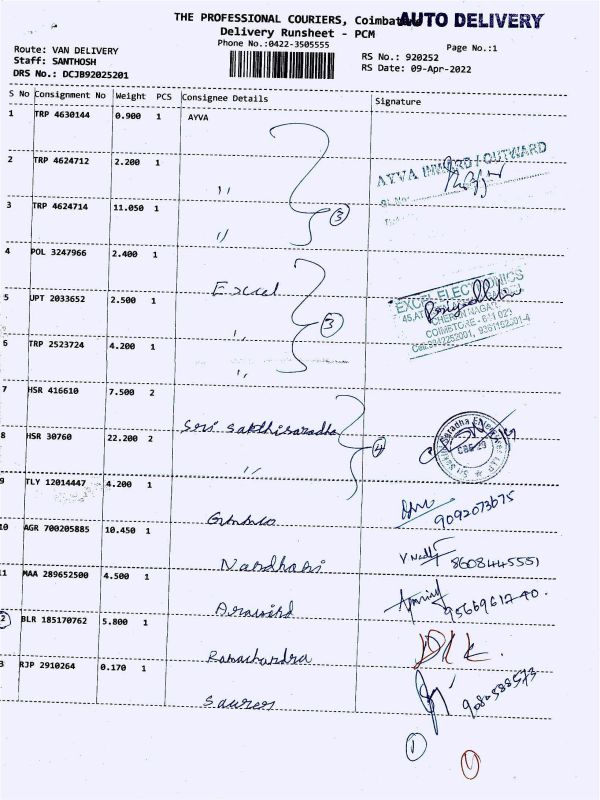 THE PROFESSIONAL COURIERS, Coimbat
AUTO DELIVERY
Delivery Runsheet - PCM
Phone No.:0422-3505555
Page No.:1
Route: VAN DELIVERY
Staff: SANTHOSH
DRS No.: DCJB92025201
RS No.: 920252
RS Date: 09-Apr-2022
S No Consignment No Weight PCS Consignee Details Signature
1 TRP 4630144 0.900 1 AYVA
2 TRP 4624712 2.200 1 ,,
AYVA INWARD / OUTWARD
3 TRP 4624714 11.050 1 ,,
3
4 POL 3247966 2.400 1 Excel
EXCEL ELECTRONICS
5 UPT 2033652 2.500 1 ,,
3
CHERAN NAGAR
COIMBATORE - 641 021
6 TRP 2523724 4.200 1 ,,
7 HSR 416610 7.500 2 Sri Sakthisaradha
8 HSR 30760 22.200 2 ,,
4
CBE-29
9 TLY 12014447 4.200 1
9092073675
10 AGR 700205885 10.450 1 Nandhani
8608445551
11 MAA 289652500 4.500 1 Aravind
9566961240.
12 BLR 185170762 5.800 1 Ramachandra
D/L.
3 RJP 2910264 0.170 1
1